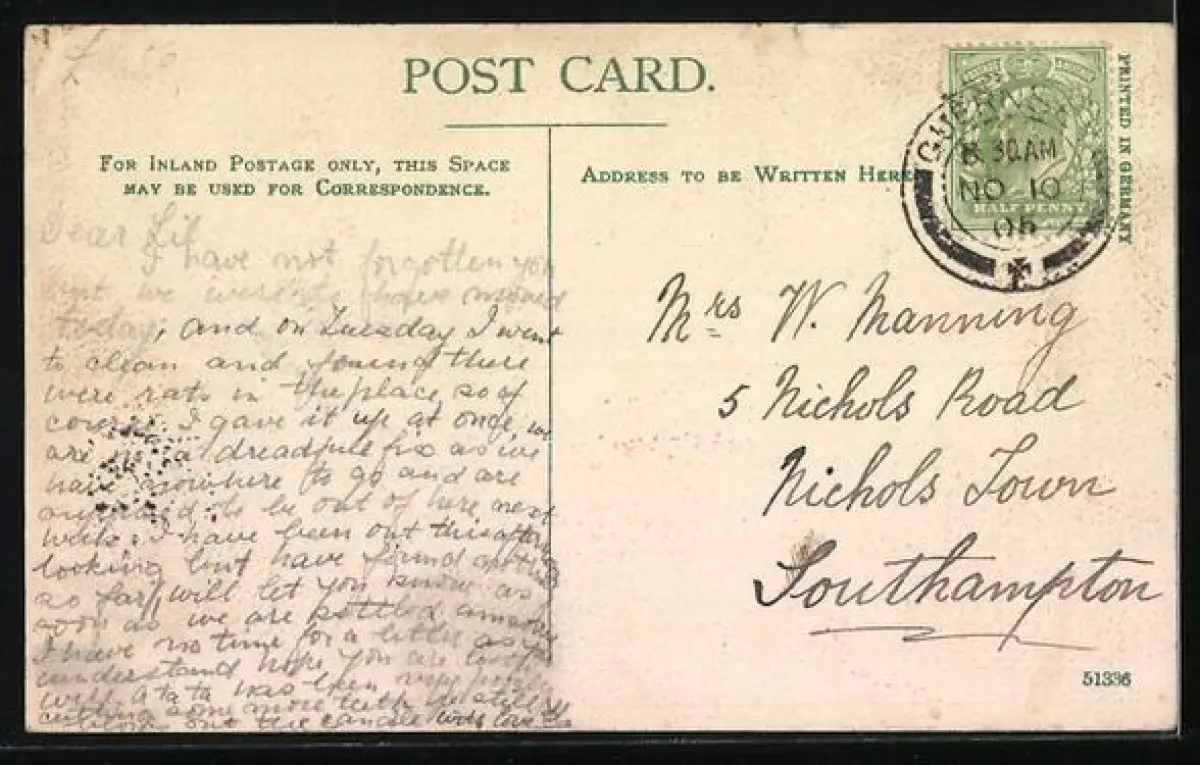 POST CARD.
FOR INLAND POSTAGE ONLY, THIS SPACE
MAY BE USED FOR CORRESPONDENCE.
ADDRESS TO BE WRITTEN HERE
PRINTED IN GERMANY
GUERNSEY
30 AM
NO 10
HALF PENNY
Dear Lil
I have not forgotten you
but we were have moved
today, and on Tuesday I went
to clean and found there
were rats in the place, so of
course I gave it up at once, we
are in a dreadful fix as we
have nowhere to go and are
to be out of here next
week. I have been out this
looking but have found nothing
so far, will let you know as
soon as we are settled
I have no time for a letter as you
understand hope you are
well ta ta
some more teeth he still
out the candle with love
Mrs W. Manning
5 Nichols Road
Nichols Town
Southampton
51336